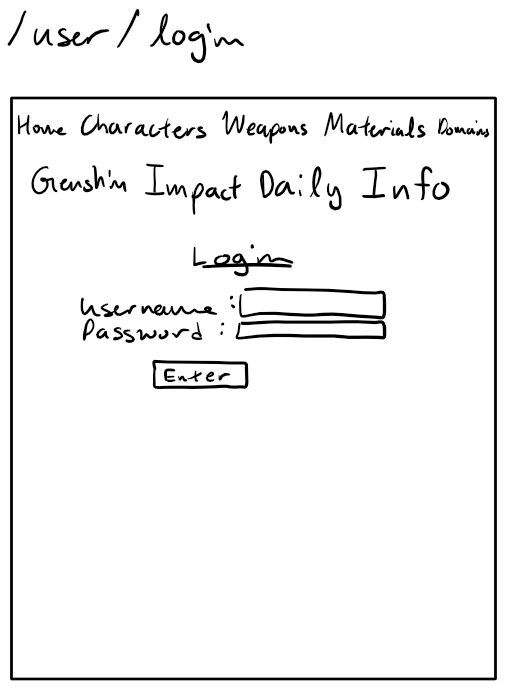 /user/login
Home Characters Weapons Materials Domains
Genshin Impact Daily Info
Login
Username :
Password :
Enter